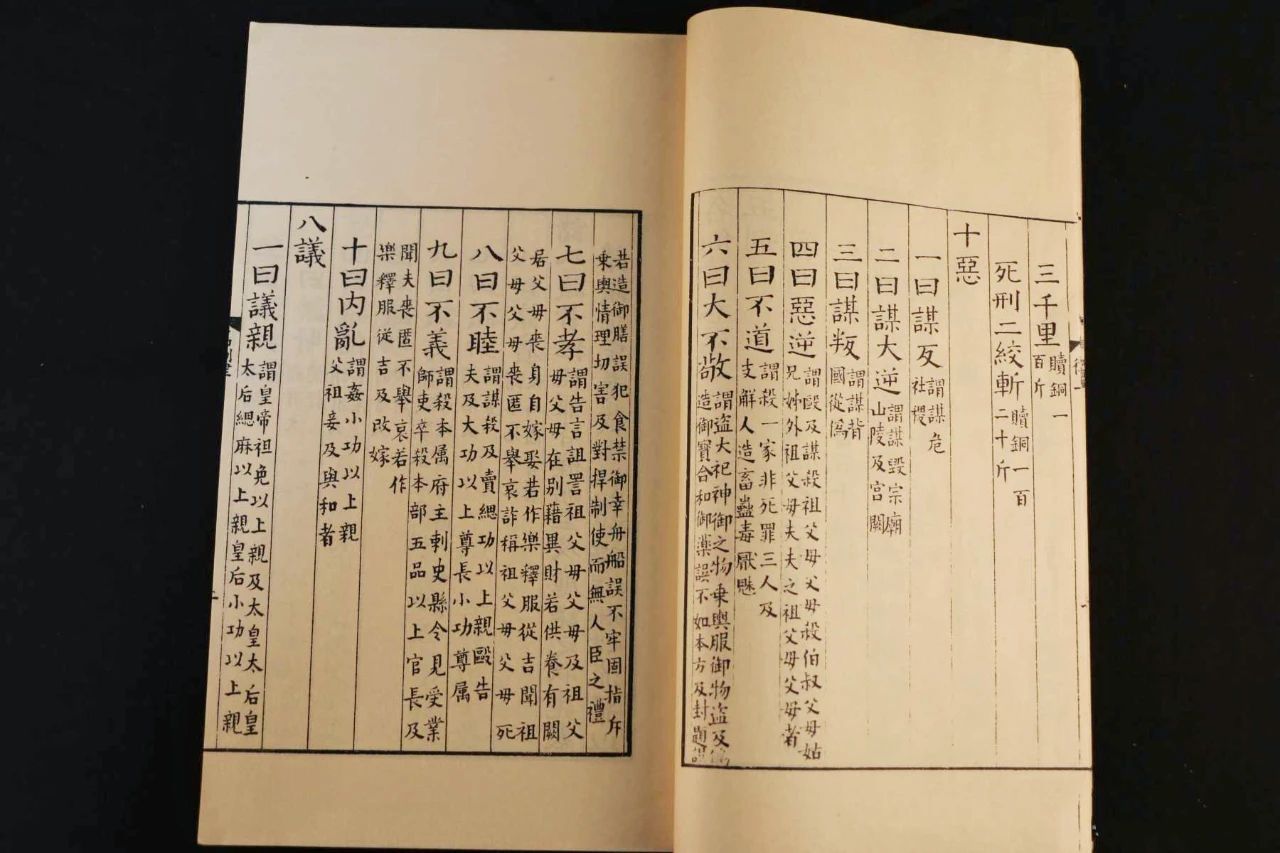 三千里贖銅一百斤
死刑二絞斬贖銅一百二十斤
十惡
一曰謀反謂謀危社稷
二曰謀大逆謂謀毀宗廟山陵及宮闕
三曰謀叛謂謀背國從偽
四曰惡逆謂毆及謀殺祖父母父母殺伯叔父母姑兄姊外祖父母夫夫之祖父母父母者
五曰不道謂殺一家非死罪三人及支解人造畜蠱毒厭魅
六曰大不敬謂盜大祀神御之物乗輿服御物盜及偽造御寶合和御藥誤不如本方及封題誤
若造御膳誤犯食禁御幸舟船誤不牢固指斥乗輿情理切害及對捍制使而無人臣之禮
七曰不孝謂告言詛詈祖父母父母及祖父母父母在別藉異財若供養有闕
居父母喪身自嫁娶若作樂釋服從吉聞祖父母父母喪匿不舉哀詐稱祖父母父母死
八曰不睦謂謀殺及賣緦功以上親毆告夫及大功以上尊長小功尊属
九曰不義謂殺本属府主刺史縣令見受業師吏卒殺本部五品以上官長及
聞夫喪匿不舉哀若作樂釋服從吉及改嫁
十曰内亂謂姦小功以上親父祖妾及與和者
八議
一曰議親謂皇帝祖免以上親及太皇太后皇太后緦麻以上親皇后小功以上親